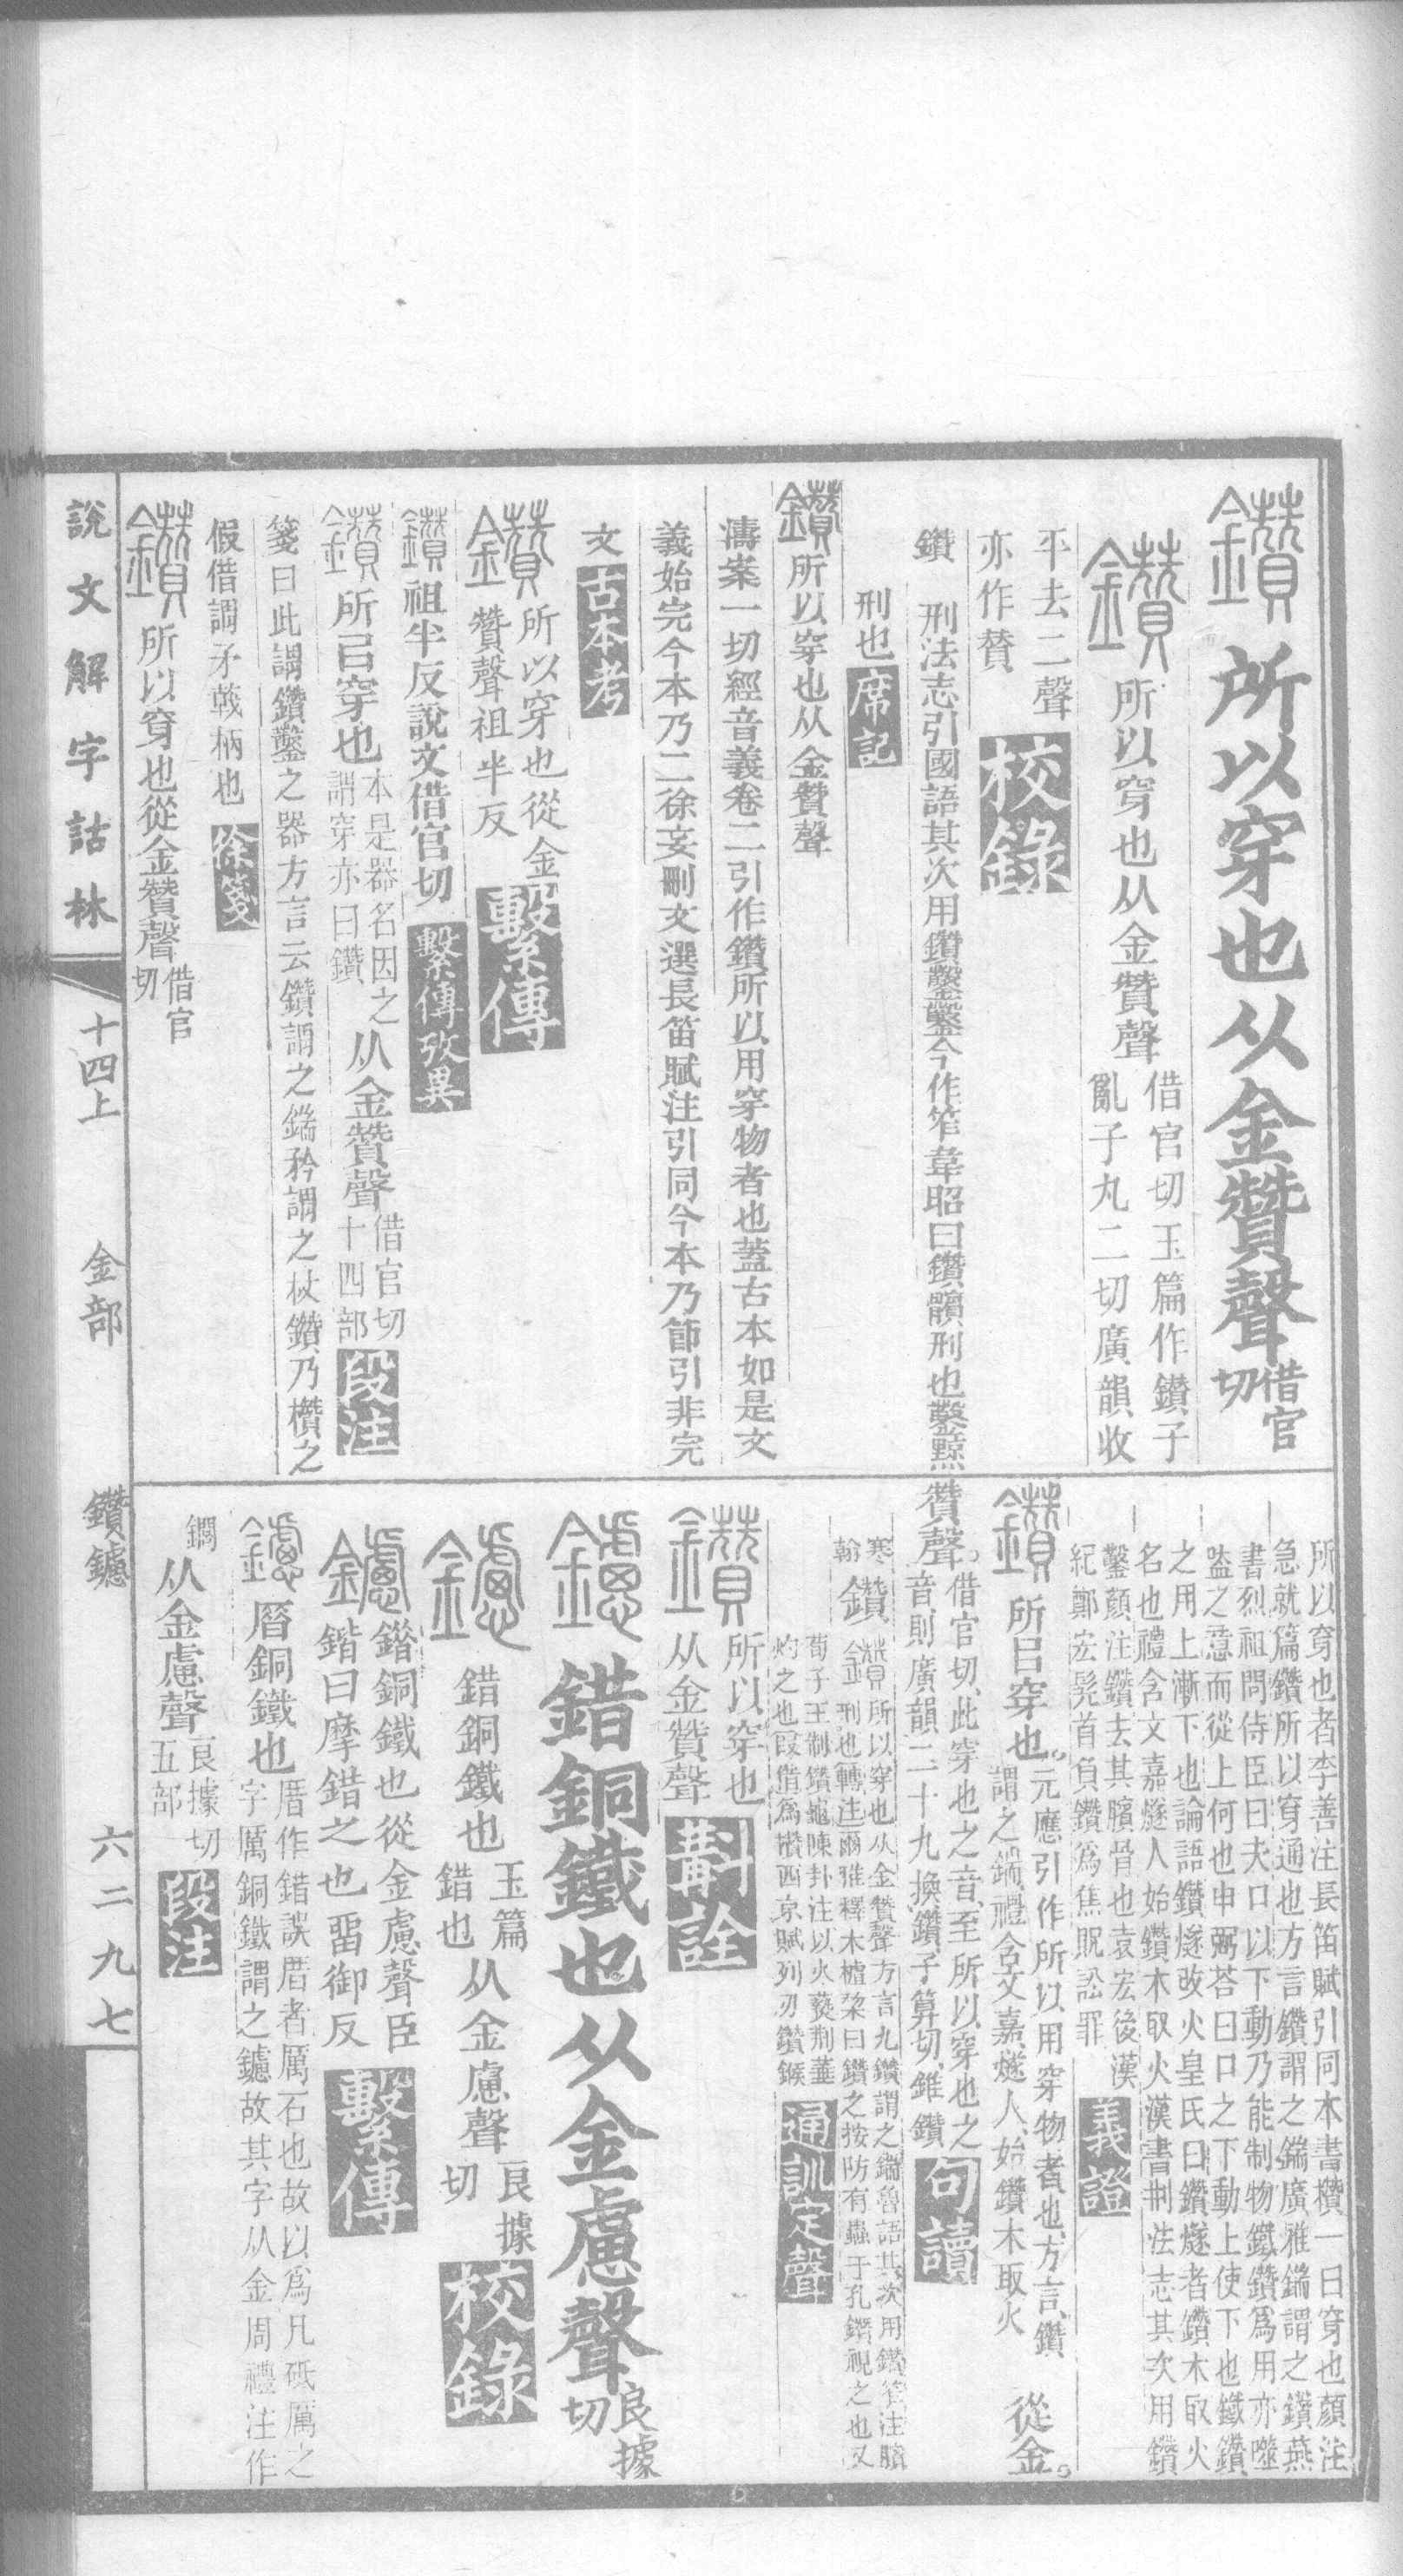 鑽 所以穿也从金贊聲 借官切
鑽 所以穿也从金贊聲 借官切玉篇作鑚子亂子丸二切廣韻收
平去二聲
亦作賛 校錄
鑽 刑法志引國語其次用鑽鑿鑿今作笮韋昭曰鑽臏刑也鑿黥
刑也 席記
鑽 所以穿也从金贊聲
濤案一切經音義卷二引作鑽所以用穿物者也蓋古本如是文
義始完今本乃二徐妄刪文選長笛賦注引同今本乃節引非完
文 古本考
鑽 所以穿也從金贊聲祖半反 繫傳
鑽 祖半反說文借官切 繫傳攷異
鑽 所㠯穿也 本是器名因之謂穿亦曰鑽 从金贊聲 借官切十四部 段注
箋曰此謂鑽鑿之器方言云鑽謂之鍴矜謂之杖鑽乃欑之
假借謂矛戟柄也 徐箋
鑽 所以穿也從金贊聲 借官切
所以穿也者李善注長笛賦引同本書欑一曰穿也顏注
急就篇鑽所以穿通也方言鑽謂之鍴廣雅鍴謂之鑽燕
書烈祖問侍臣曰夫口以下動乃能制物鐵鑽爲用亦噬
嗑之意而從上何也申弼荅曰口之下動上使下也鐵鑽
之用上漸下也論語鑽燧改火皇氏曰鑽燧者鑽木取火
名也禮含文嘉燧人始鑽木取火漢書刑法志其次用鑽
鑿顏注鑽去其臏骨也袁宏後漢
紀鄭宏髡首負鑽爲焦貺訟罪 義證
鑽 所㠯穿也 元應引作所以用穿物者也方言鑽謂之鍴禮含文嘉燧人始鑽木取火 從金
贊聲 借官切此穿也之音至所以穿也之音則廣韻二十九換鑽子算切錐鑽 句讀
寒翰 鑽 所以穿也从金贊聲方言九鑽謂之鍴魯語其次用鑽笮注臏
刑也轉注爾雅釋木樝棃曰鑽之按防有蟲于孔鑽視之也又
荀子王制鑽龜陳卦注以火爇荆菙
灼之也叚借爲欑西京賦列刃鑽鍭 通訓定聲
鑽 所以穿也从金贊聲 斠詮
鑢 錯銅鐵也从金慮聲 良據切
鑢 錯銅鐵也 玉篇錯也 从金慮聲 良據切 校錄
鑢 鐕銅鐵也從金慮聲臣
鍇曰摩錯之也畱御反 繫傳
鑢 厝銅鐵也 厝作錯誤厝者厲石也故以爲凡砥厲之
字厲銅鐵謂之鑢故其字从金周禮注作
鐧 从金慮聲 良據切五部 段注
說文解字詁林
十四上 金部 鑽鑢 六二九七